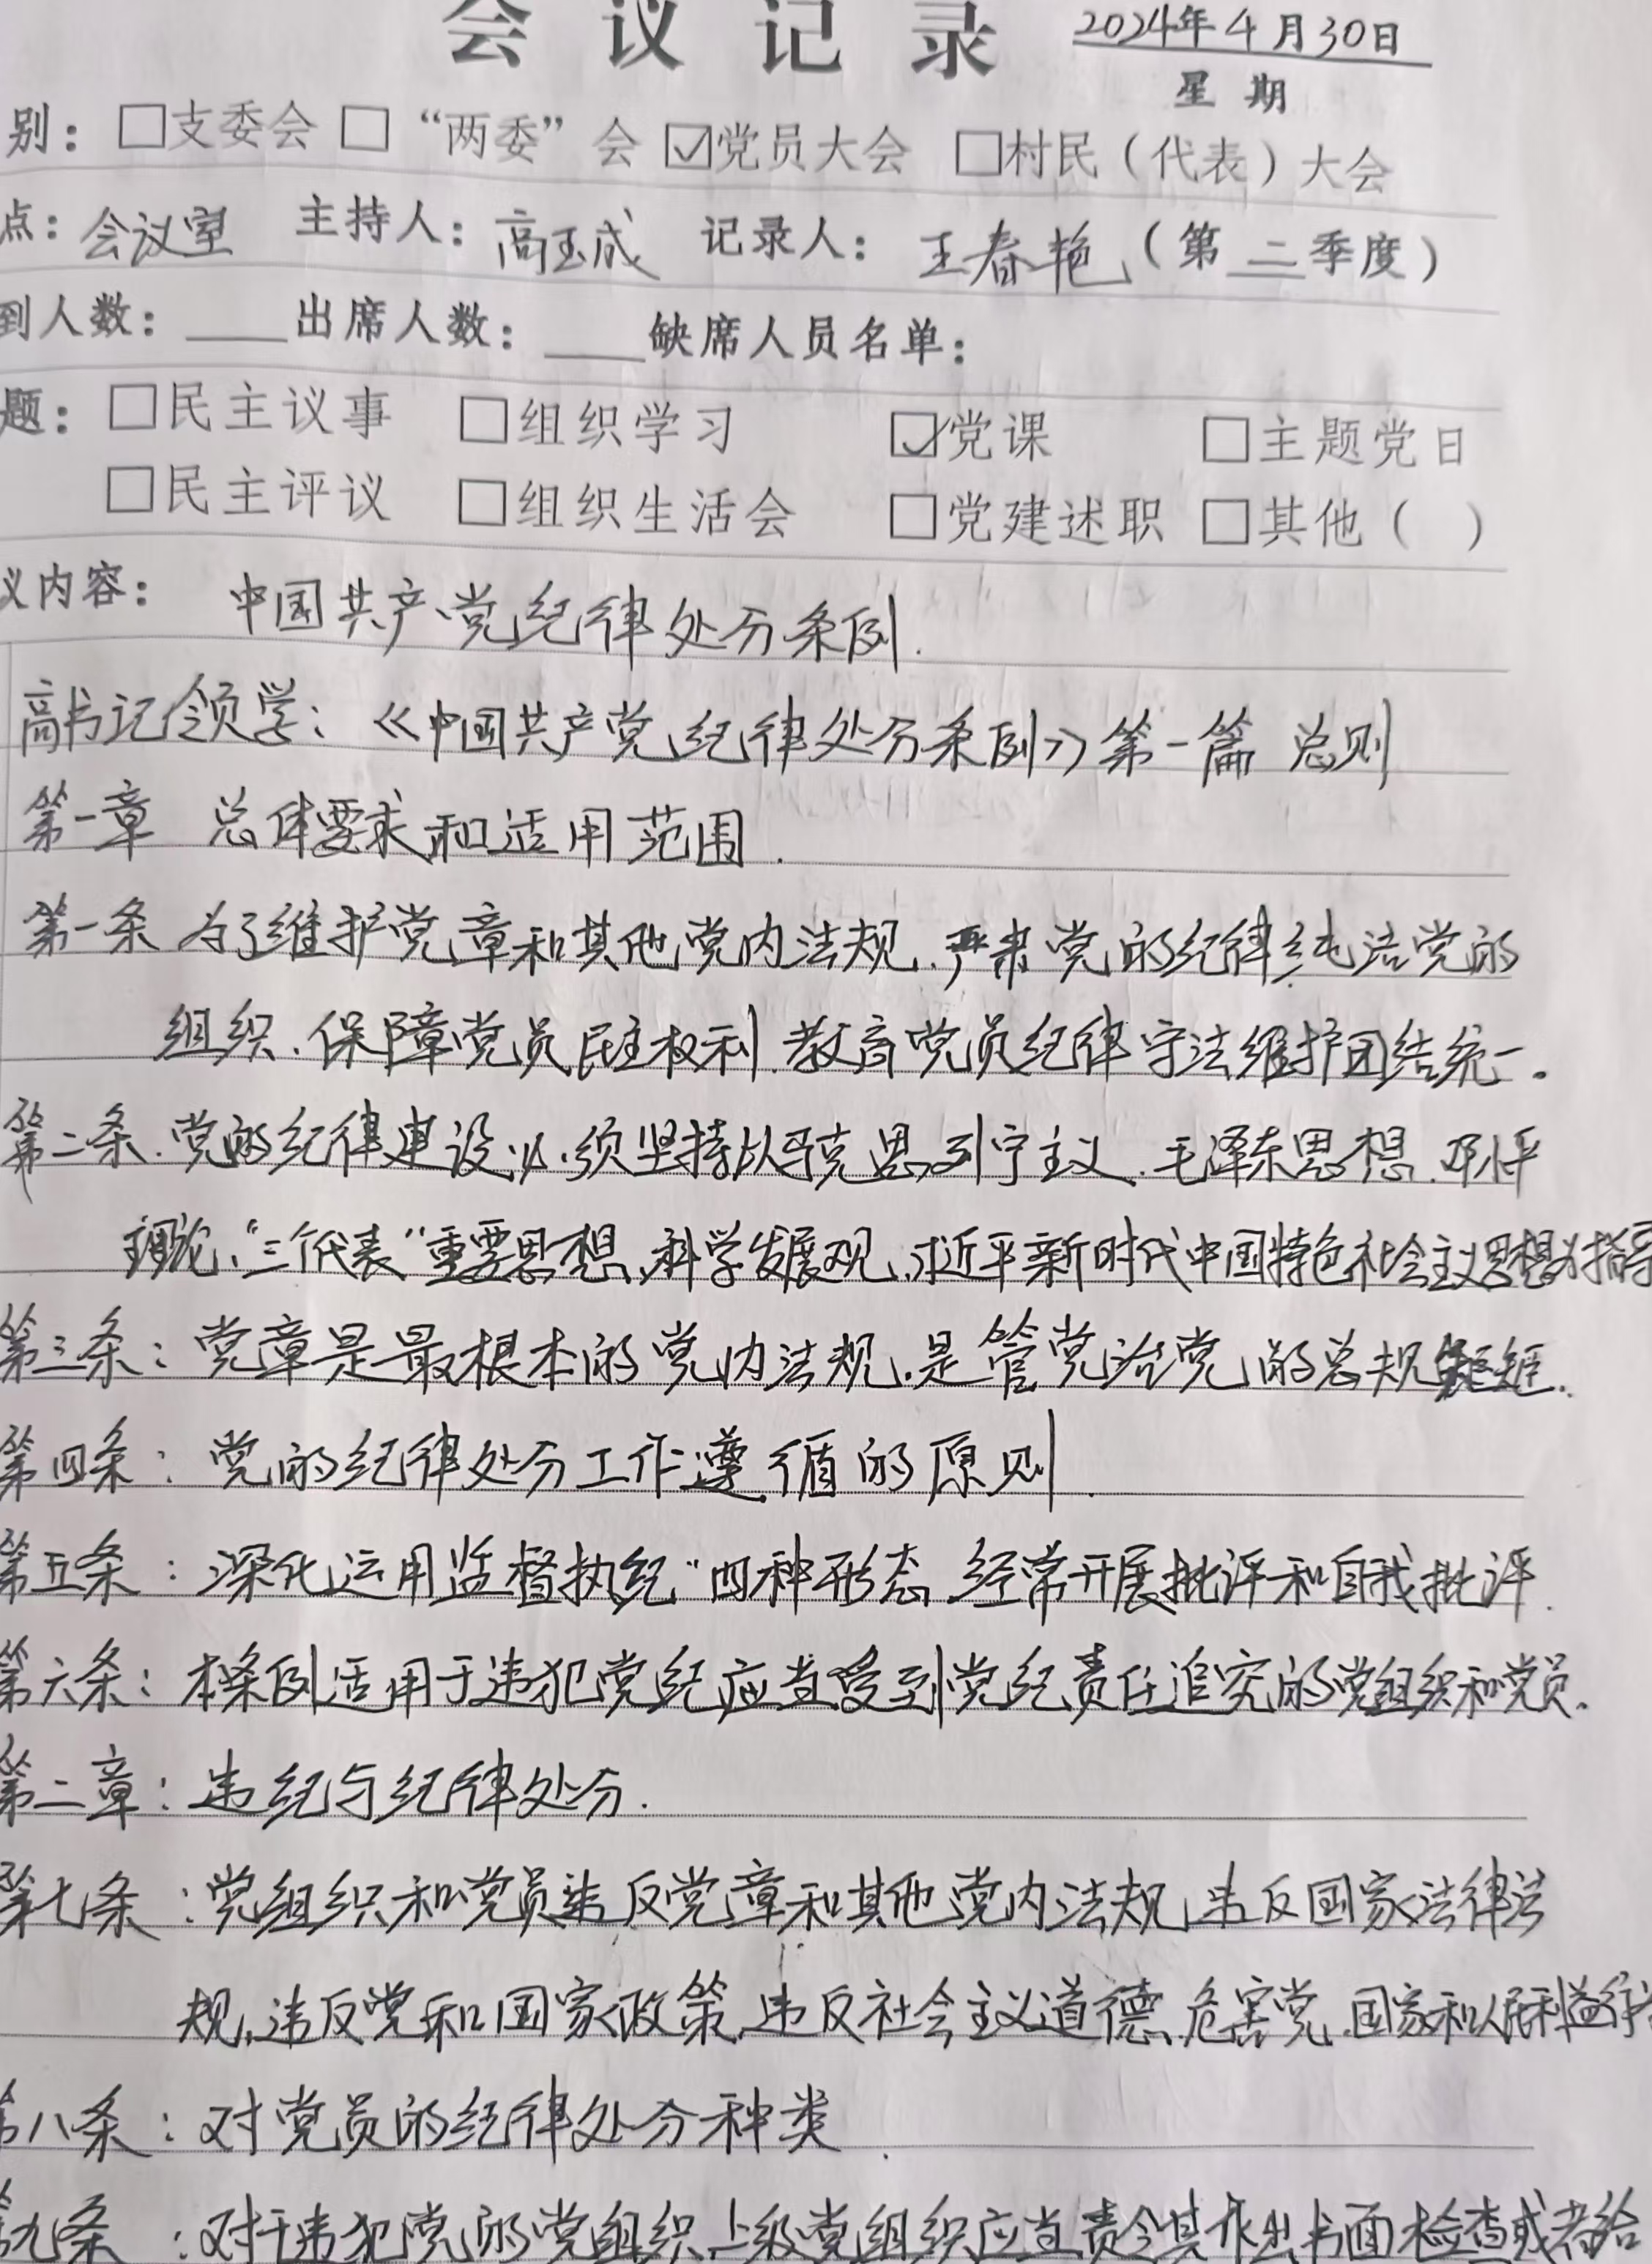 会议记录 2024年4月30日
星期
别：□支委会 □“两委”会 ☑党员大会 □村民（代表）大会
点：会议室 主持人：高玉成 记录人：王春艳（第二季度）
到人数：____出席人数：____缺席人员名单：
题：□民主议事 □组织学习 ☑党课 □主题党日
□民主评议 □组织生活会 □党建述职 □其他（ ）
议内容：中国共产党纪律处分条例.
高书记领学：《中国共产党纪律处分条例》第一篇 总则
第一章 总体要求和适用范围.
第一条 为了维护党章和其他党内法规.严肃党的纪律纯洁党的
组织.保障党员民主权利.教育党员纪律守法维护团结统一。
第二条.党的纪律建设必须坚持以马克思列宁主义.毛泽东思想.邓小平
理论、“三个代表”重要思想、科学发展观、习近平新时代中国特色社会主义思想为指导
第三条：党章是最根本的党内法规.是管党治党的总规矩.
第四条：党的纪律处分工作遵循的原则.
第五条：深化运用监督执纪“四种形态 经常开展批评和自我批评.
第六条：本条例适用于违犯党纪应当受到党纪责任追究的党组织和党员.
第二章：违纪与纪律处分.
第七条：党组织和党员违反党章和其他党内法规,违反国家法律法
规,违反党和国家政策,违反社会主义道德、危害党.国家和人民利益行为
第八条：对党员的纪律处分种类.
第九条：对于违犯党的党组织上级党组织应当责令其作出书面检查或者给